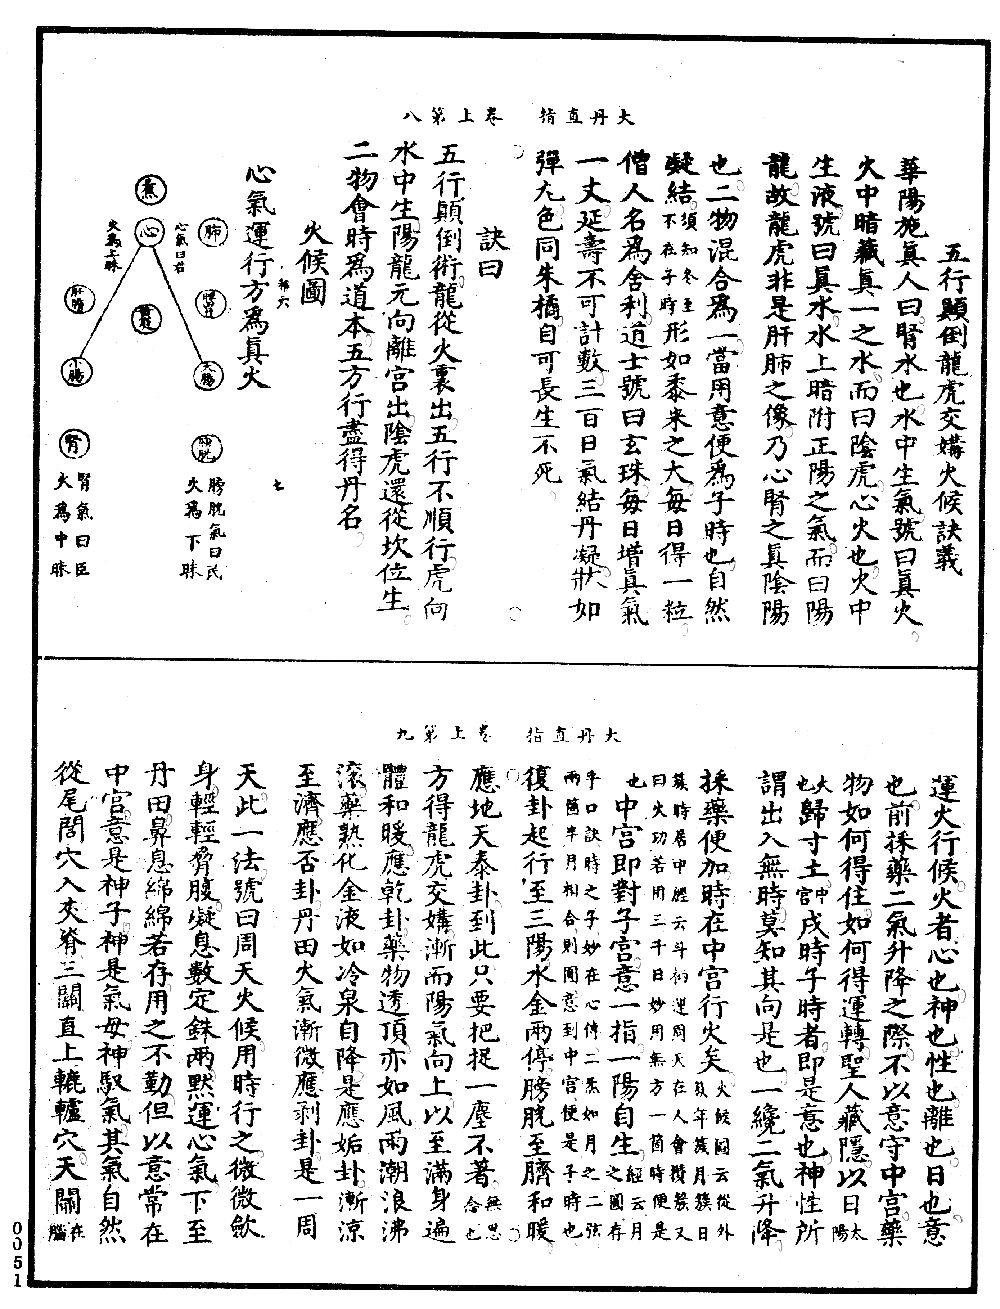 大丹直指　卷上第八
五行顛倒龍虎交媾火候訣義
華陽施真人曰腎水也水中生氣號曰真火
火中暗藏真一之水而曰陰虎心火也火中
生液號曰真水水上暗附正陽之氣而曰陽
龍故龍虎非是肝肺之像乃心腎之真陰陽
也二物混合為一當用意便為子時也自然
凝結須知冬至不在子時形如黍米之大每日得一粒
僧人名為舍利道士號曰玄珠每日增真氣
一丈延壽不可計數三百日氣結丹凝狀如
彈丸色同朱橘自可長生不死
訣曰
五行顛倒術龍從火裏出五行不順行虎向
水中生陽龍元向離宮出陰虎還從坎位生
二物會時為道本五方行盡得丹名
火候圖
心氣運行方為真火
肺
心
心氣曰君
火為上昧
肝膽
小腸
大腸
腎
腎氣曰臣
火為中昧
膀胱
膀胱氣曰民
火為下昧
七
大丹直指　卷上第九
運火行候火者心也神也性也離也日也意
也前採藥二氣升降之際不以意守中宮藥
物如何得住如何得運轉聖人藏隱以日太陽
大也歸寸土中宮戌時子時者即是意也神性所
謂出入無時莫知其向是也一纔二氣升降
採藥便加時在中宮行火矣火候圖云從外簇年簇月簇日
簇時居中經云斗柄運周天在人會攢簇又曰火功若用三千日妙用無方一箇時便是
也中宮即對子宮意一指一陽自生經云月之圓存
乎口訣時之子妙在心傳二炁如月之二弦兩箇半月相合則圓意到中宮便是子時也
復卦起行至三陽水金兩停膀胱至臍和暖
應地天泰卦到此只要把捉一塵不著無思念也
方得龍虎交媾漸而陽氣向上以至滿身遍
體和暖應乾卦藥物透頂亦如風雨潮浪沸
滾藥熟化金液如冷泉自降是應姤卦漸涼
至濟應否卦丹田火氣漸微應剥卦是一周
天此一法號曰周天火候用時行之微微歛
身輕輕脅腹凝息數定銖兩默運心氣下至
丹田鼻息綿綿若存用之不勤但以意常在
中宮意是神子神是氣母神馭氣其氣自然
從尾閭穴入夾脊三關直上轆轤穴天關在腦
0051